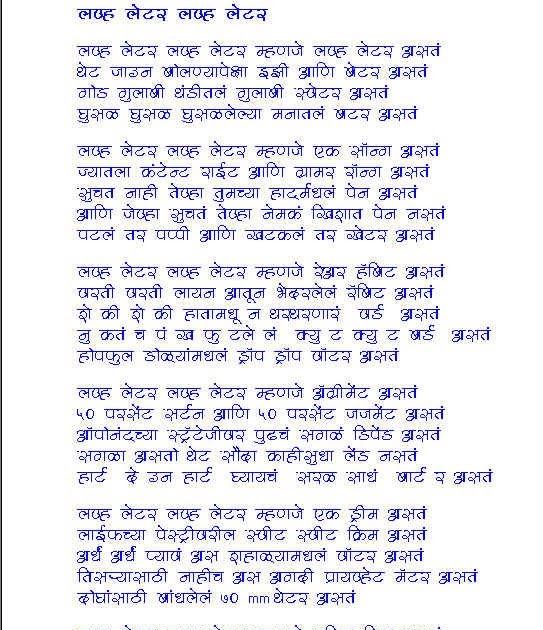 लव्ह लेटर लव्ह लेटर
लव्ह लेटर लव्ह लेटर म्हणजे लव्ह लेटर असतं
थेट जाउन बोलण्यापेक्षा इझी आणि बेटर असतं
गोड गुलाबी थंडीतलं गुलाबी स्वेटर असतं
घुसळ घुसळ घुसळलेल्या मनातलं बटर असतं
लव्ह लेटर लव्ह लेटर म्हणजे एक सॉन्ग असतं
ज्यातला कंटेन्ट राईट आणि ग्रामर रॉन्ग असतं
सुचत नाही तेव्हा तुमच्या हार्टमधलं पेन असतं
आणि जेव्हा सुचतं तेव्हा नेमकं खिशात पेन नसतं
पटलं तर पप्पी आणि खटकलं तर खेटर असतं
लव्ह लेटर लव्ह लेटर म्हणजे रेअर हॅबिट असतं
वरती वरती लायन आतून भेदरलेलं रॅबिट असतं
शे की शे की हातामधू न थरथरणारं वर्ड असतं
नु कतं च पं ख फु टले लं क्यु ट क्यु ट बर्ड असतं
होपफुल डोळ्यांमधलं ड्रॉप ड्रॉप वॉटर असतं
लव्ह लेटर लव्ह लेटर म्हणजे अ‍ॅग्रीमेंट असतं
५० परसेंट सर्टन आणि ५० परसेंट जजमेंट असतं
ऑपोनंटच्या स्ट्रॅटेजीवर पुढचं सगळं डिपेंड असतं
सगळा असतो थेट सौदा काहीसुधा लेंड नसतं
हार्ट दे उन हार्ट घ्यायचं सरळ साधं बार्ट र असतं
लव्ह लेटर लव्ह लेटर म्हणजे एक ड्रीम असतं
लाईफच्या पेस्ट्रीवरील स्वीट स्वीट क्रिम असतं
अर्धं अर्धं प्यावं अस शहाळ्यामधलं वॉटर असतं
तिसऱ्यासाठी नाहीच अस अगदी प्रायव्हेट मॅटर असतं
दोघांसाठी बांधलेलं ७० mm थेटर असतं